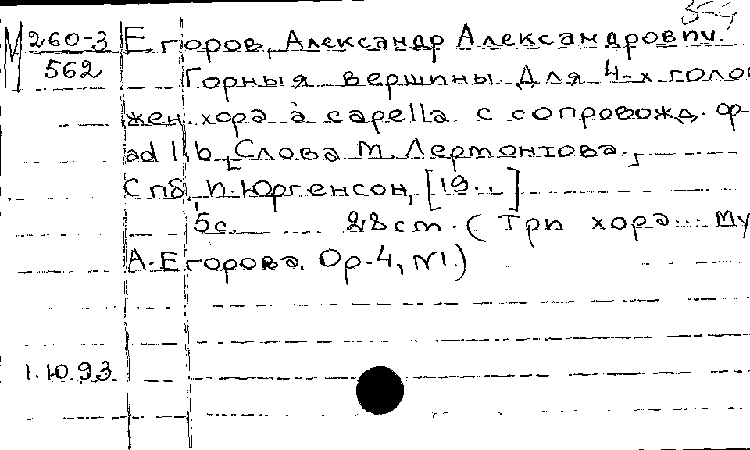 М 260-3 Егоров, Александр Александрович.
562 Горныя вершины. Для 4-х голо
жен. хора à capella с сопровожд. ф
ad lib. [Слова М. Лермонтова.]
Спб, П. Юргенсон, [19..]
5с. 28 см. (Три хора... му
А. Егорова. Ор. 4, №1.)
1.10.93